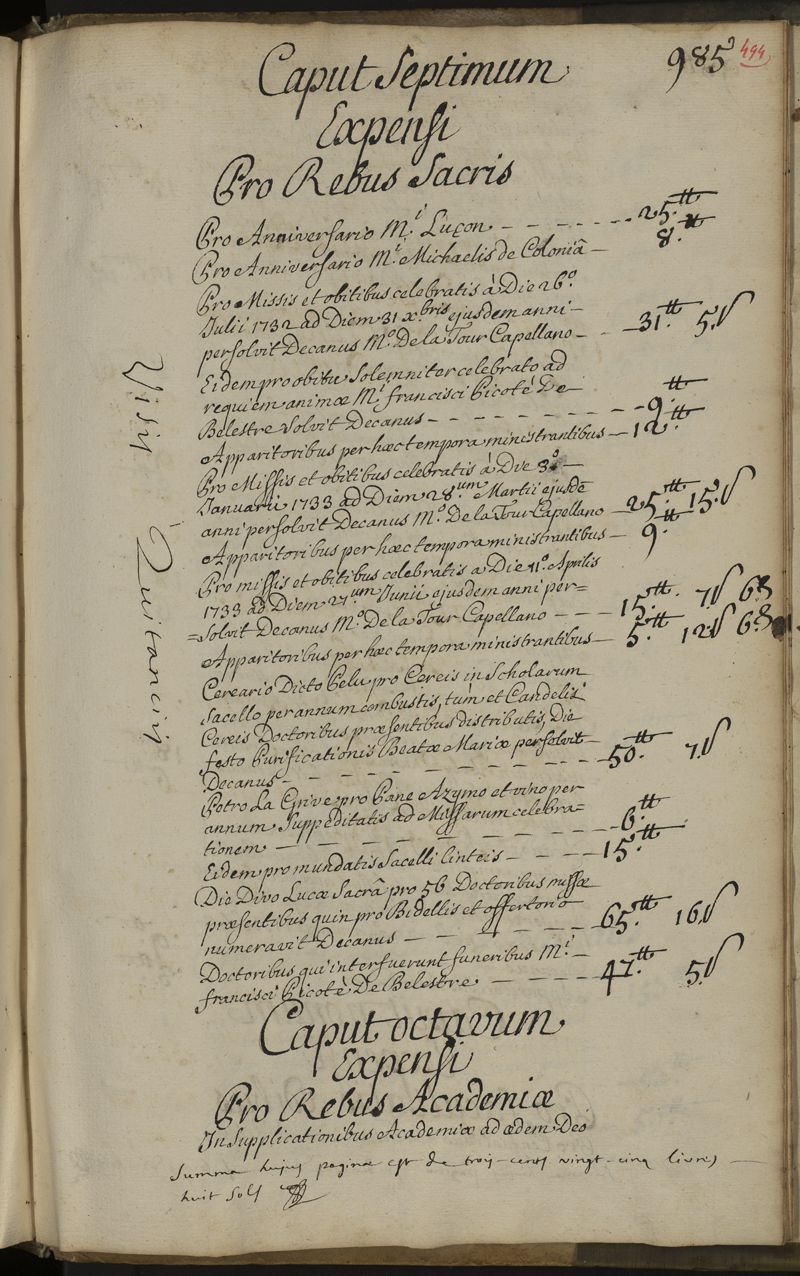 985 494
Caput Septimum
Expensi
Pro Rebus Sacris
Pro Anniversario M.i Luçon - - - - - - 25.tt
Pro Anniversario M.i Michaelis de Coloniâ - 8.tt
Pro Missis et obitibus celebratis à Die 26.o
Julii 1732 ad Diem 31 xbris ejusdem anni -
persolvit Decanus M.o De la Tour Capellano - - 31.tt 5.s
Eidem pro obitu Solemniter celebrato ad
requiem animæ M.i francisci Picoté De -
Belestre solvit Decanus - - - - - - - - 9.tt
Apparitoribus per hæc tempora ministrantibus - 12.tt
Pro Missis et obitibus celebratis à Die 3.o -
Januarii 1733 ad Diem 28.um Martii ejusdē
anni persolvit Decanus M.o De la Tour Capellano - 25.tt 15.s
Apparitoribus per hæc tempora ministrantibus - 9.tt
Pro missis et obitibus celebratis a Die 11.o Aprilis
1733 ad Diem 27.um Junii ejusdem anni per=
=solvit Decanus M.o De la Tour Capellano - - - 15.tt 7.s 6.d
Apparitoribus per hæc tempora ministrantibus - 5.tt 12.s 6.d
Cereario Dicto Pelu pro Cereis in Scholarum
Sacello per annum combustis, tùm et Candelis
Cereis Doctoribus præsentibus distributis, Die
festo Purificationis Beatæ Mariæ persolvit
Decanus - - - - - - - - - - - 50.tt 7.s
Petro La Grive pro Pane Azymo et vino per
annum Suppeditatis ad Missarum celebra=
tionem - - - - - - - - - - - 6.tt
Eidem pro mundatis Sacelli linteis - - - - 15.tt
Die Divo Lucæ Sacrâ pro 56 Doctoribus missæ
præsentibus quin pro Bidellis et offertorio
numeravit Decanus - - - - - - - 65.tt 16.s
Doctoribus qui interfuerunt funeribus M.i -
francisci Picoté De Belestre - - - - 47.tt 5.s
Visis Quitanciis
Caput octavum
Expensi
Pro Rebus Academiæ
In Supplicationibus Academiæ ad ædem Deo
Summa hujus paginæ est de trois-cents vingt-cinq livres -
huit sols